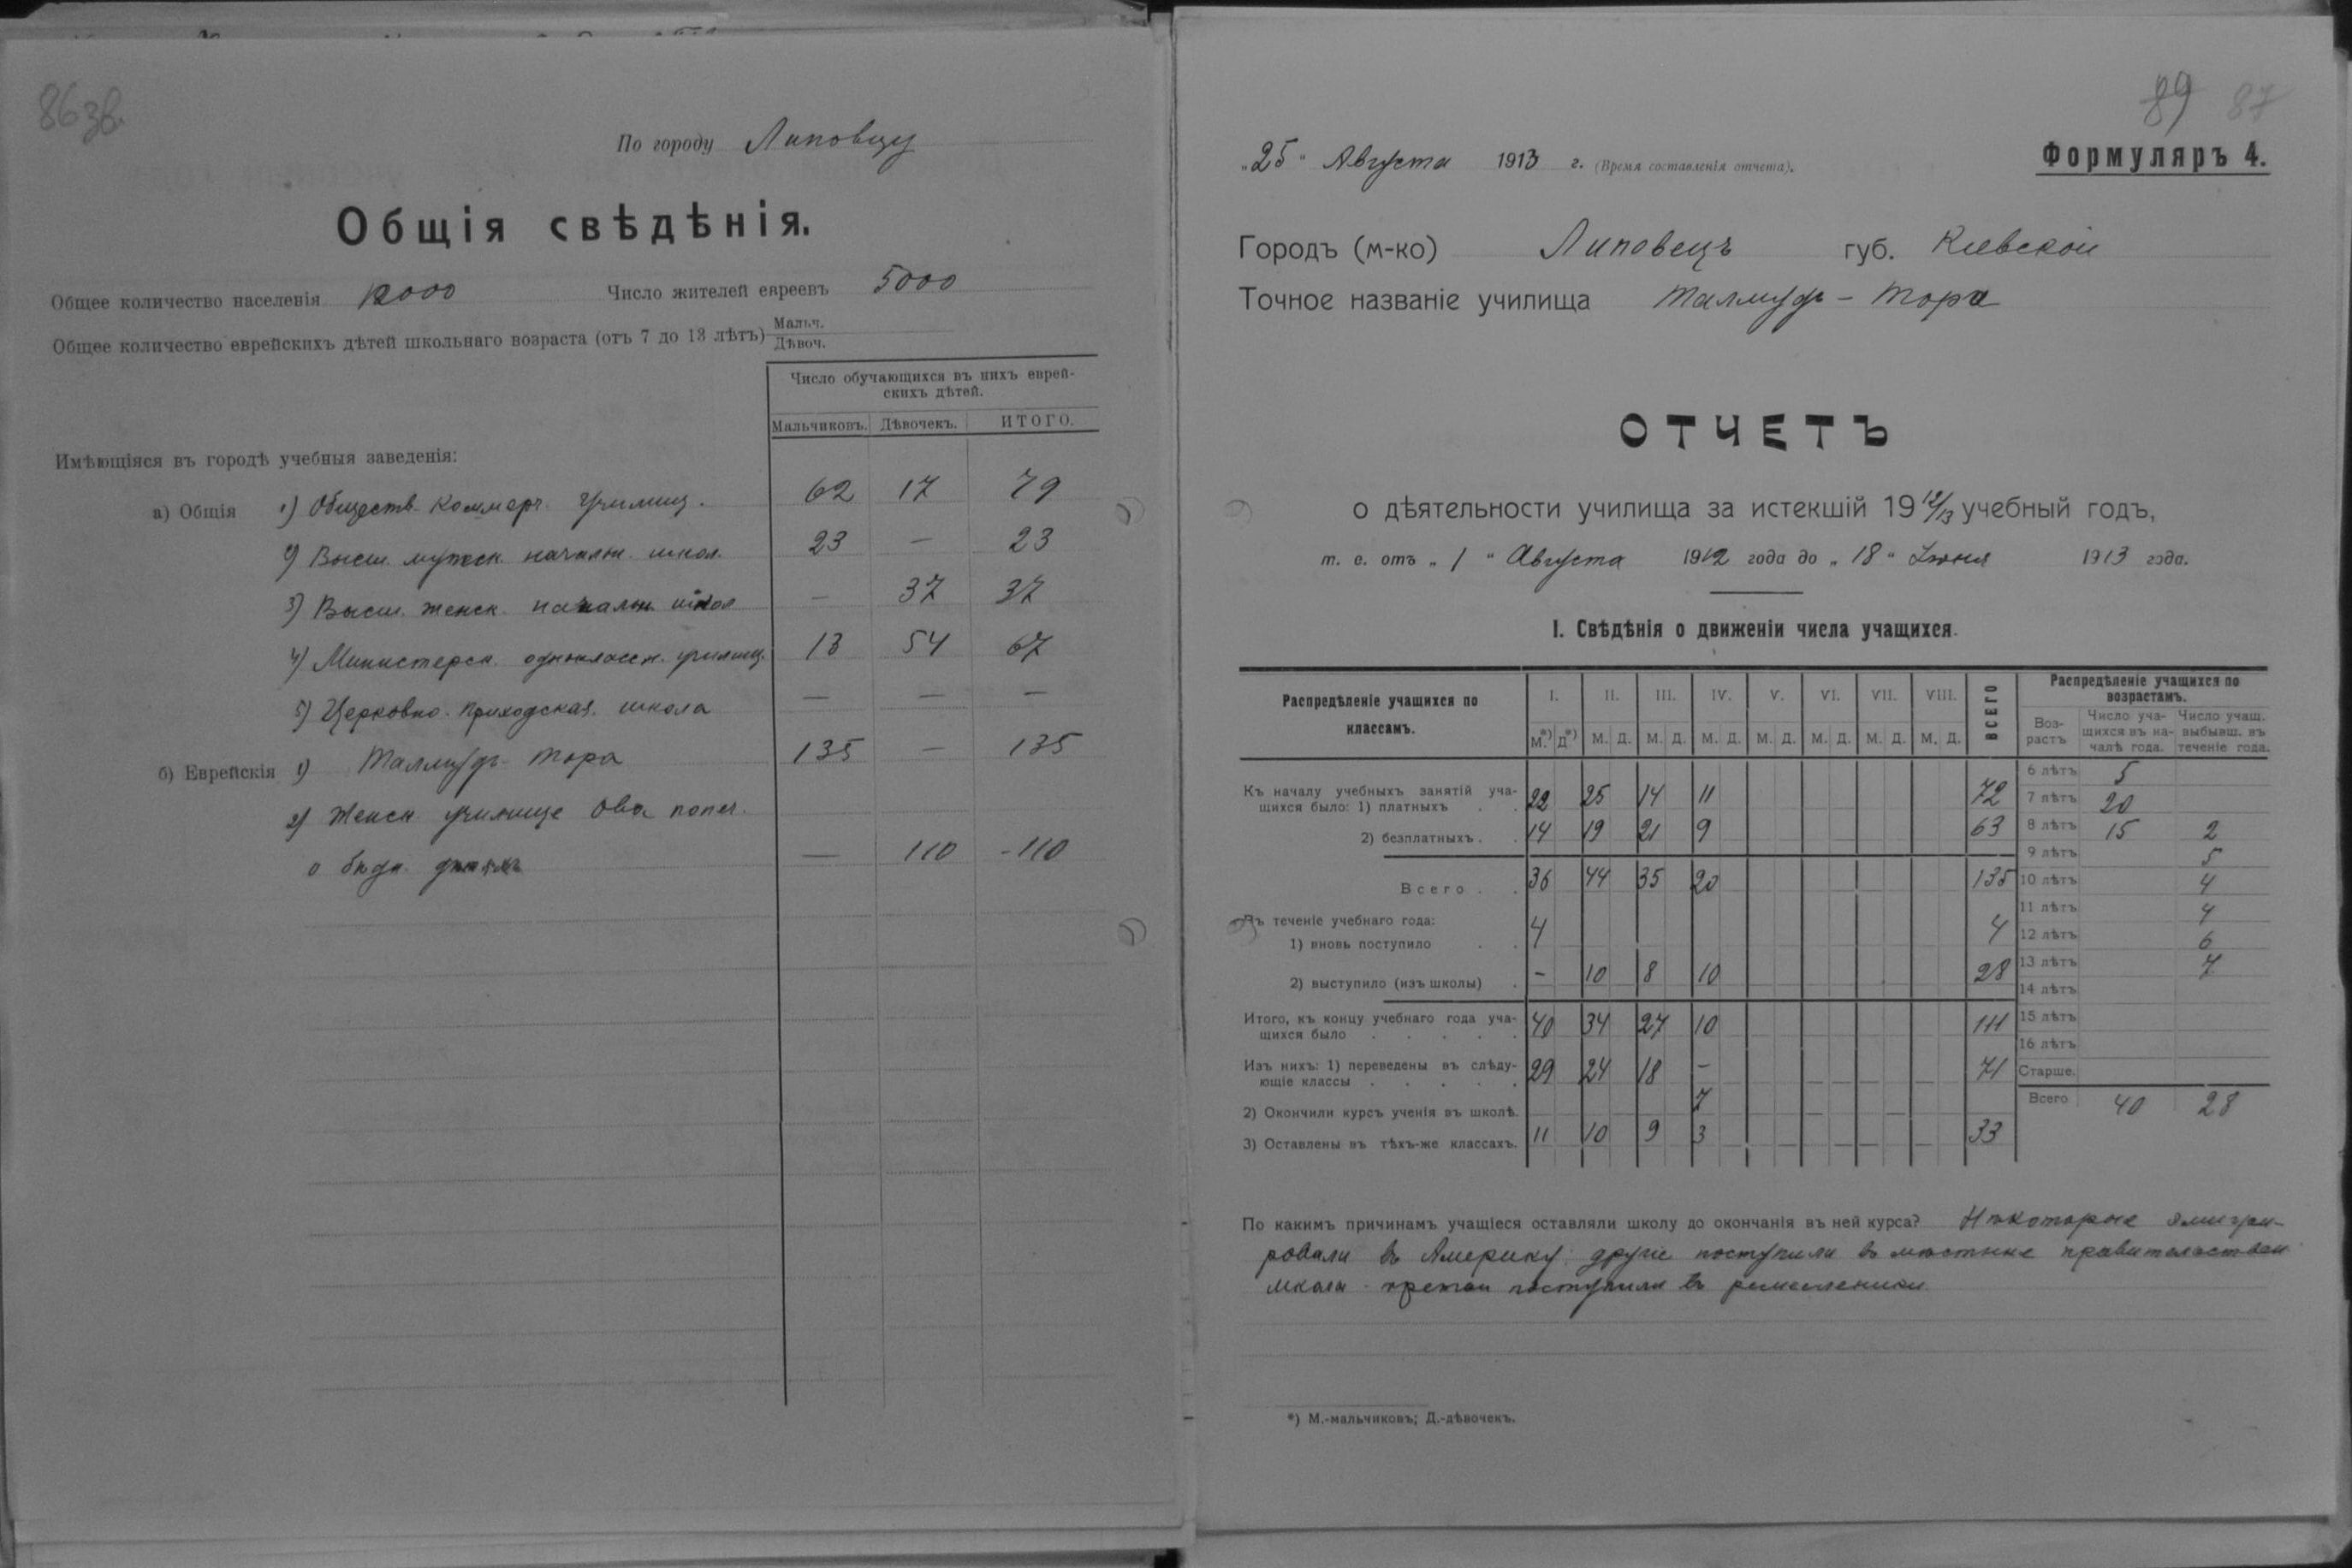 86 зв.
По городу Липовцу
Общія свѣдѣнія.
Общее количество населенія 12000 Число жителей евреевъ 5000
Общее количество еврейскихъ дѣтей школьнаго возраста (отъ 7 до 13 лѣтъ) Мальч.
Дѣвоч.
Число обучающихся въ нихъ еврей-
скихъ дѣтей.
Мальчиковъ. Дѣвочекъ. ИТОГО.
Имѣющіяся въ городѣ учебныя заведенія:
а) Общія 1) Обществ. Коммерч. Училищ. 62 17 79
2) Высш. мужск. начальн. школ. 23 — 23
3) Высш. женск. начальн. школ — 37 37
4) Министерск. одноклассн. училищ. 13 54 67
5) Церковно-приходская школа — — —
б) Еврейскія 1) Талмудъ-Тора 135 — 135
2) Женск. училище О-ва попеч.
о бѣдн. дѣтяхъ — 110 - 110
89 87
Формуляръ 4.
„25“ Августа 1913 г. (Время составленія отчета).
Городъ (м-ко) Липовецъ губ. Кіевской
Точное названіе училища Талмудъ-Тора
ОТЧЕТЪ
о дѣятельности училища за истекшій 19 12/13 учебный годъ,
т. е. отъ „1“ Августа 1912 года до „18“ Іюня 1913 года.
I. Свѣдѣнія о движеніи числа учащихся.
Распредѣленіе учащихся по
классамъ.
I. II. III. IV. V. VI. VII. VIII. ВСЕГО
М.*) Д*) М. Д. М. Д. М. Д. М. Д. М. Д. М. Д. М. Д.
Къ началу учебныхъ занятій уча-
щихся было: 1) платныхъ . . 22 25 14 11 72
2) безплатныхъ . . 14 19 21 9 63
Всего . . 36 44 35 20 135
Въ теченіе учебнаго года:
1) вновь поступило . . 4 4
2) выступило (изъ школы) . - 10 8 10 28
Итого, къ концу учебнаго года уча-
щихся было . . . . . 40 34 27 10 111
Изъ нихъ: 1) переведены въ слѣду-
ющіе классы . . . . . 29 24 18 - 71
2) Окончили курсъ ученія въ школѣ. 7
3) Оставлены въ тѣхъ-же классахъ. 11 10 9 3 33
Распредѣленіе учащихся по
возрастамъ.
Воз-
растъ
Число уча-
щихся въ на-
чалѣ года.
Число учащ.
выбывш. въ
теченіе года.
6 лѣтъ 5
7 лѣтъ 20
8 лѣтъ 15 2
9 лѣтъ 5
10 лѣтъ 4
11 лѣтъ 4
12 лѣтъ 6
13 лѣтъ 7
14 лѣтъ
15 лѣтъ
16 лѣтъ
Старше.
Всего 40 28
По какимъ причинамъ учащіеся оставляли школу до окончанія въ ней курса? Нѣкоторые эмигри-
ровали въ Америку другіе поступили въ мѣстные правительствен
школы третьи поступили въ ремесленики
*) М.-мальчиковъ; Д.-дѣвочекъ.